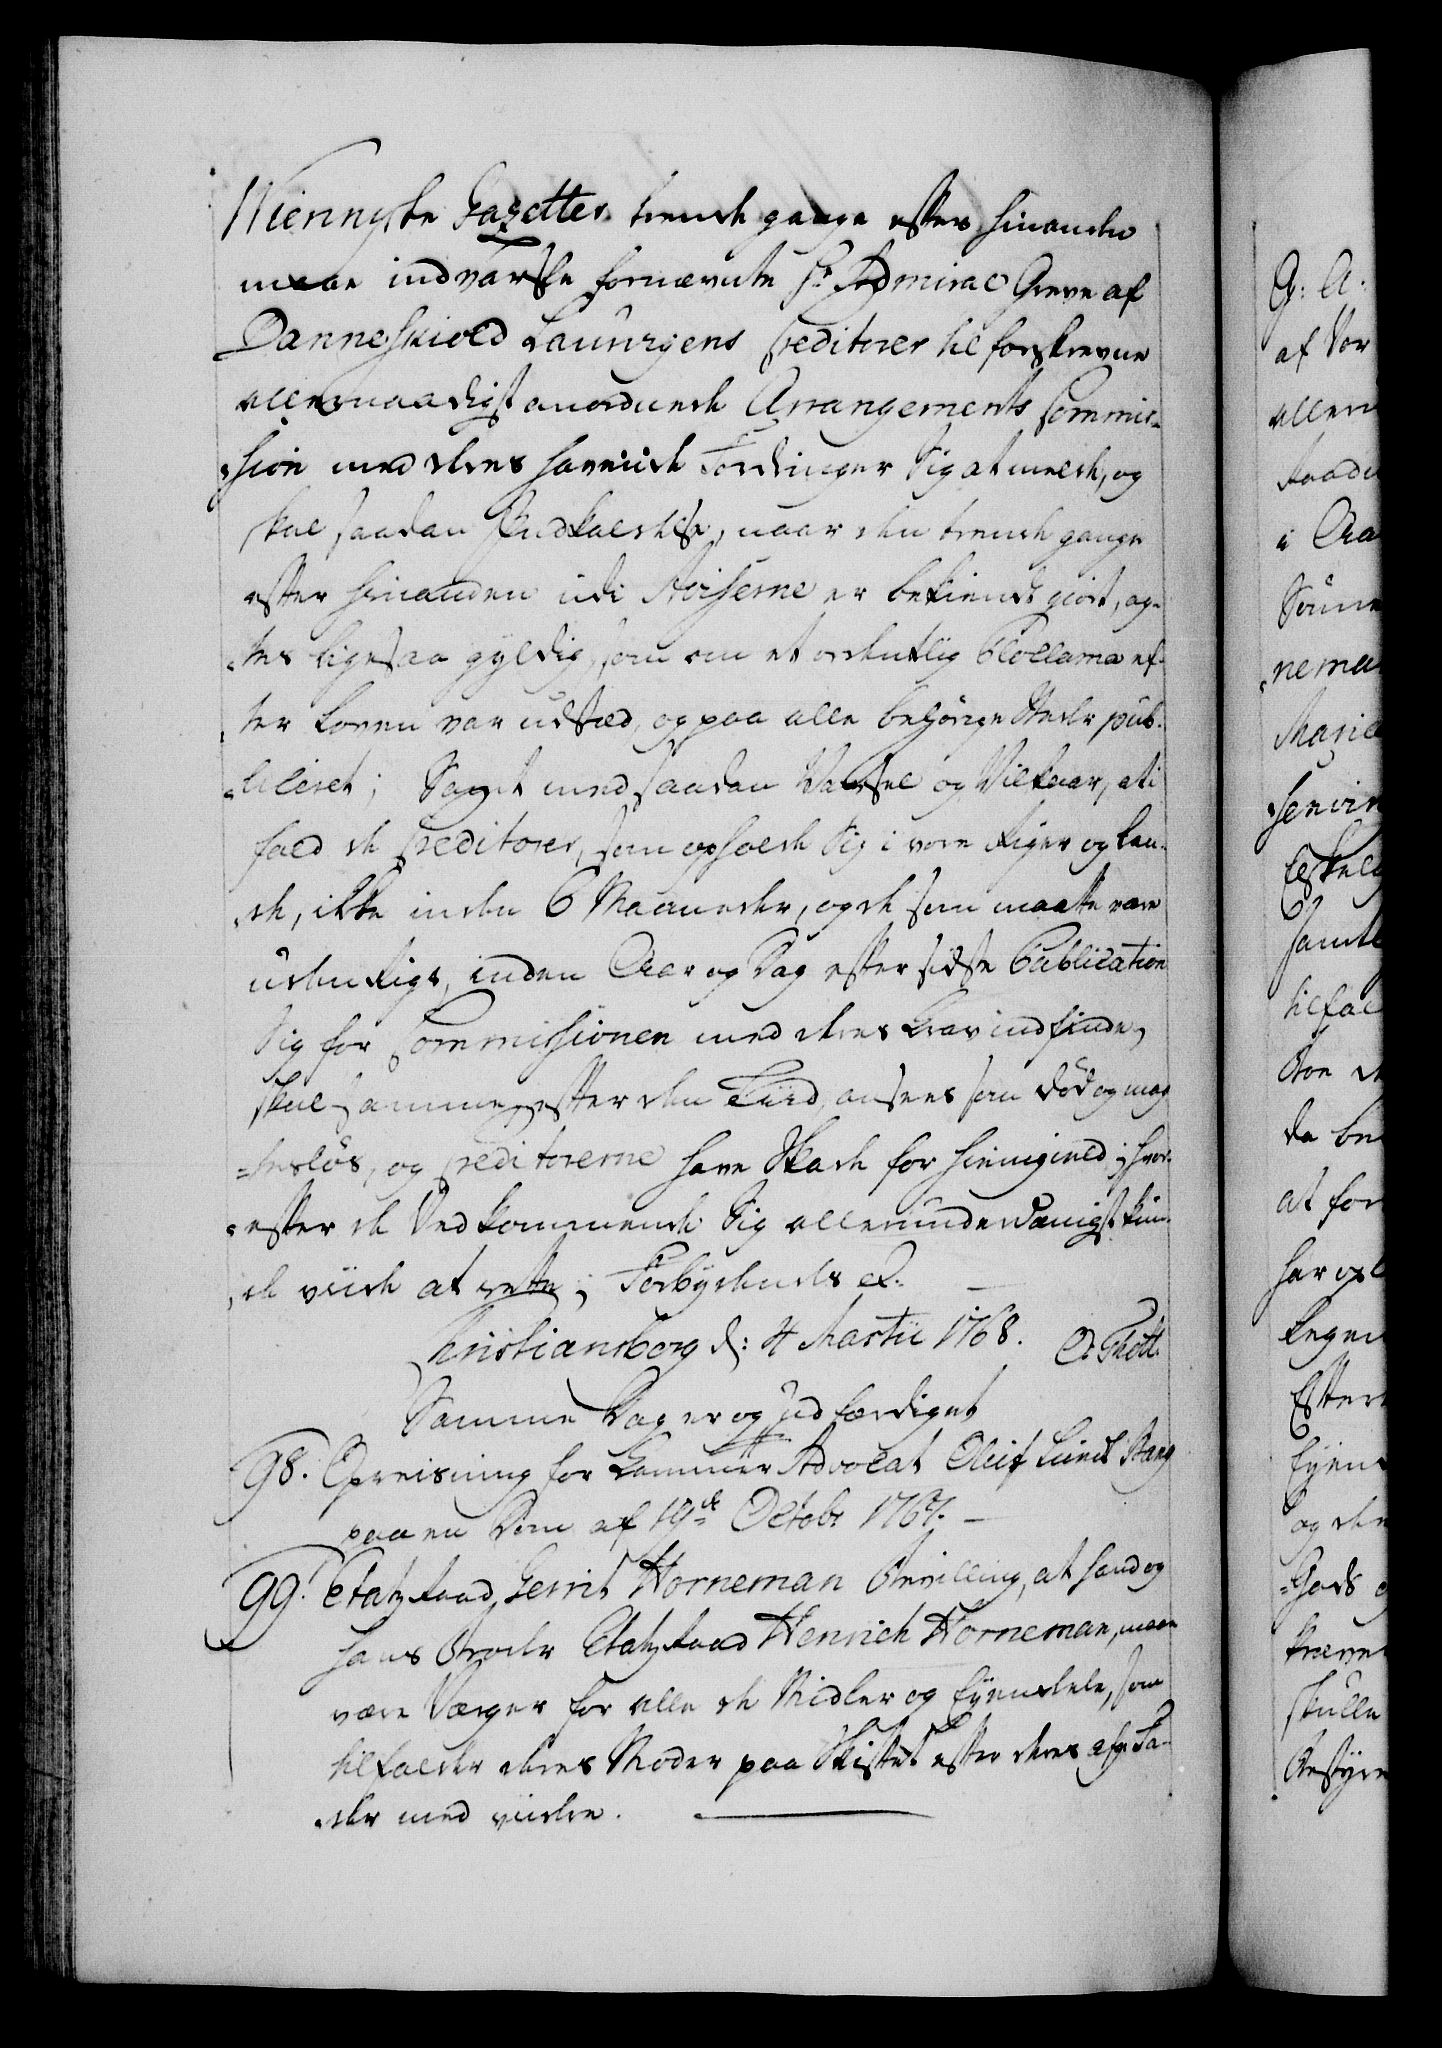 Wiennyske Gazetter trende gange efter hinanden
maae indvarsle fornævnte Hr Admiral Greve af
Danneskiold Laurvigens Creditorer til forskrevne
allernaadigst anordnede Arrangements Commis-
-sion med deres havende Fordringer Sig at melde, og
skal saadan Indkaldelse, naar den trende gange
efter hinanden udi Aviserne er bekiendt giort, ag-
-tes ligesaa gyldig, som om et ordentlig Proclama ef-
ter Loven var udstæd, og paa alle behørige Steder pub-
-liceret; Samt med saadan Varsel og Vilkaar, at i
fald de Creditorer, som opholde Sig i vore Riger og Lan-
-de, ikke inden 6 Maaneder, og de som maatte være
udenrigs, inden Aar og Dag efter sidste Publication
Sig for Commissionen med deres Krav indfinde,
skal samme efter den Tiid, ansees som død og mag-
-tesløs, og Creditorerne have Skade for hiemgield; hvor-
-efter de Vedkommende Sig allerunderdanigst kun-
-de viide at rette; Forbydendes &.
Christiansborg d: 4 Martii 1768. O: Thott.
Samme Dag er og Udfærdiget
98. Opreisning for Kammer Advocat Oluf Lund Bang
paa en Dom af 19de Octobr 1767.
99. Etatz Raad Gerrit Horneman Bevilling, at hand og
hans Broder Etatz Raad Henrich Horneman, maae
være Værger for alle de Midler og Eyendele, som
tilfalder deres Moder paa Skiftet efter deres afg: Fa-
-der med viidere.
G: A.
af Vor
allern
Raad
i Aa
Sønne
-nema
Marie
-senvin
samtl
tilfal
da be
at for
har op
Efter
Eyen
og de
-Gods
skulle
Bestyre